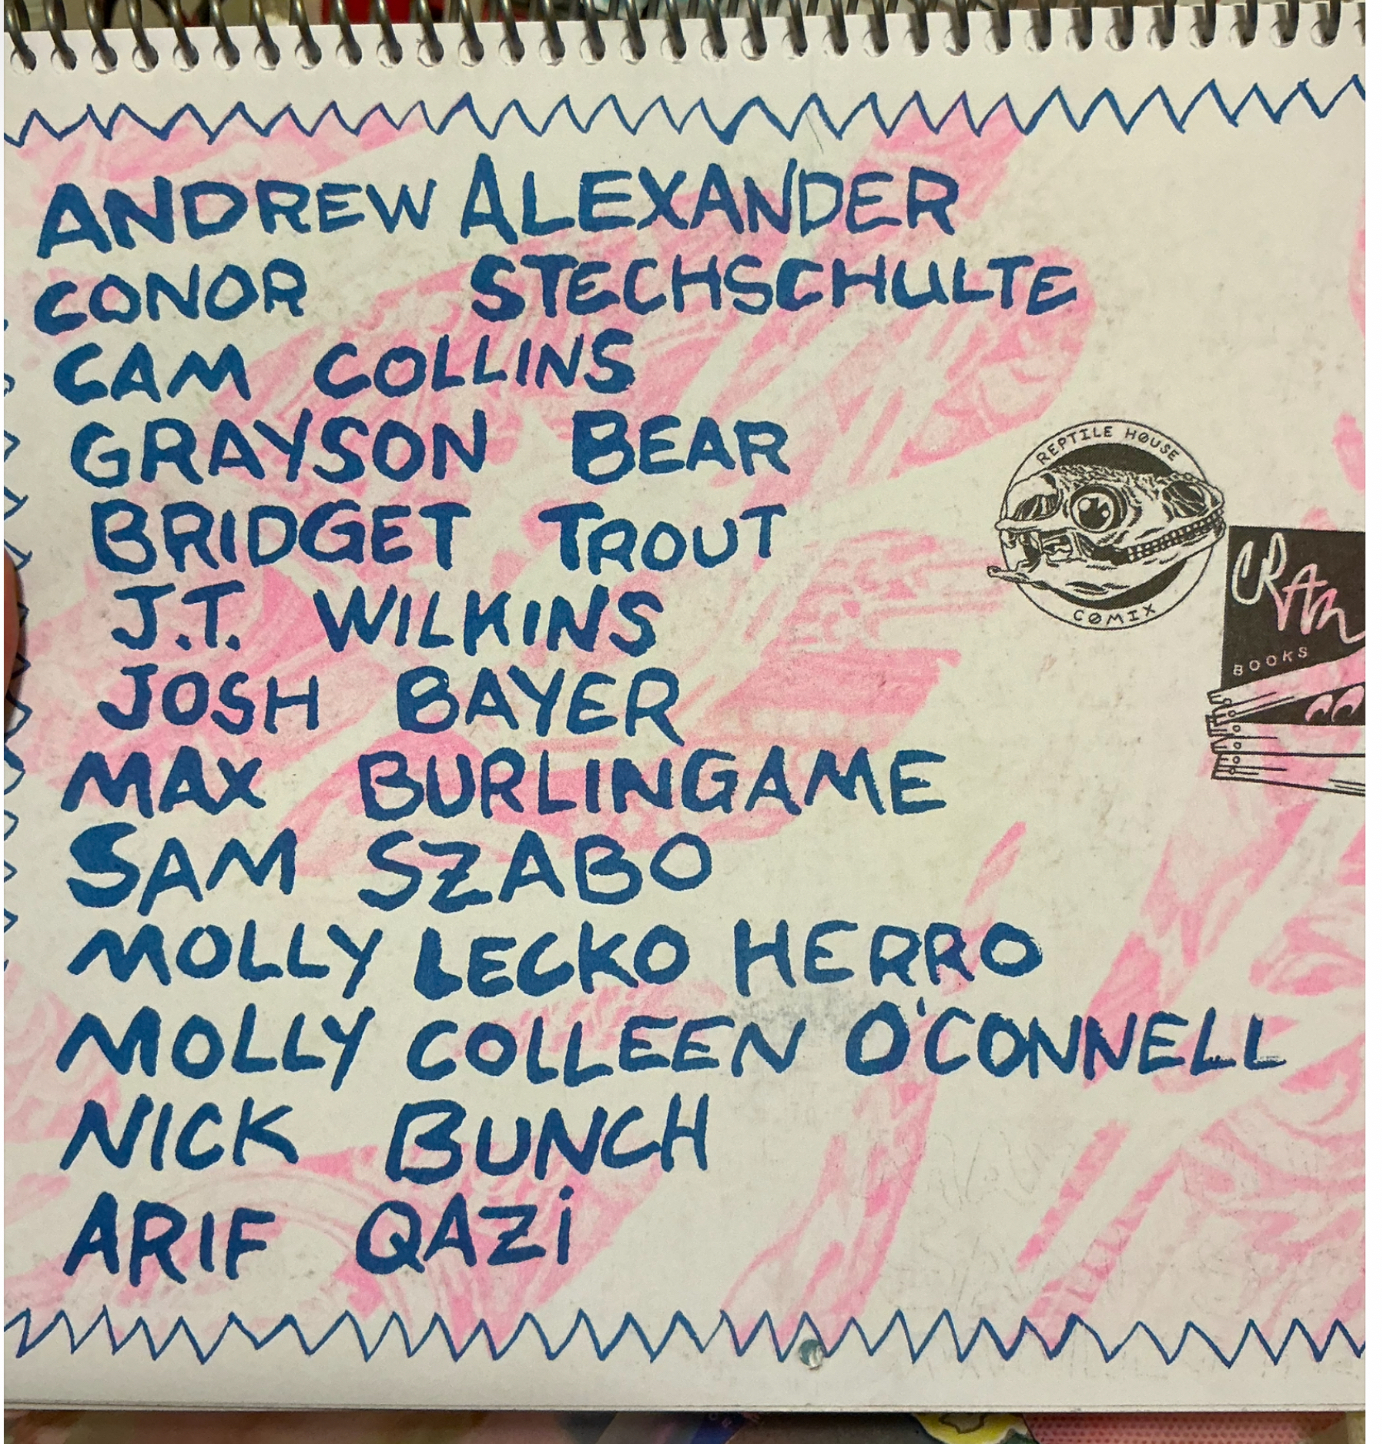 ANDREW ALEXANDER
CONOR STECHSCHULTE
CAM COLLINS
GRAYSON BEAR
BRIDGET TROUT
J.T. WILKINS
JOSH BAYER
MAX BURLINGAME
SAM SZABO
MOLLY LECKO HERRO
MOLLY COLLEEN O'CONNELL
NICK BUNCH
ARIF QAZi
REPTILE HØUSE
CØMIX
CRAM
BOOKS